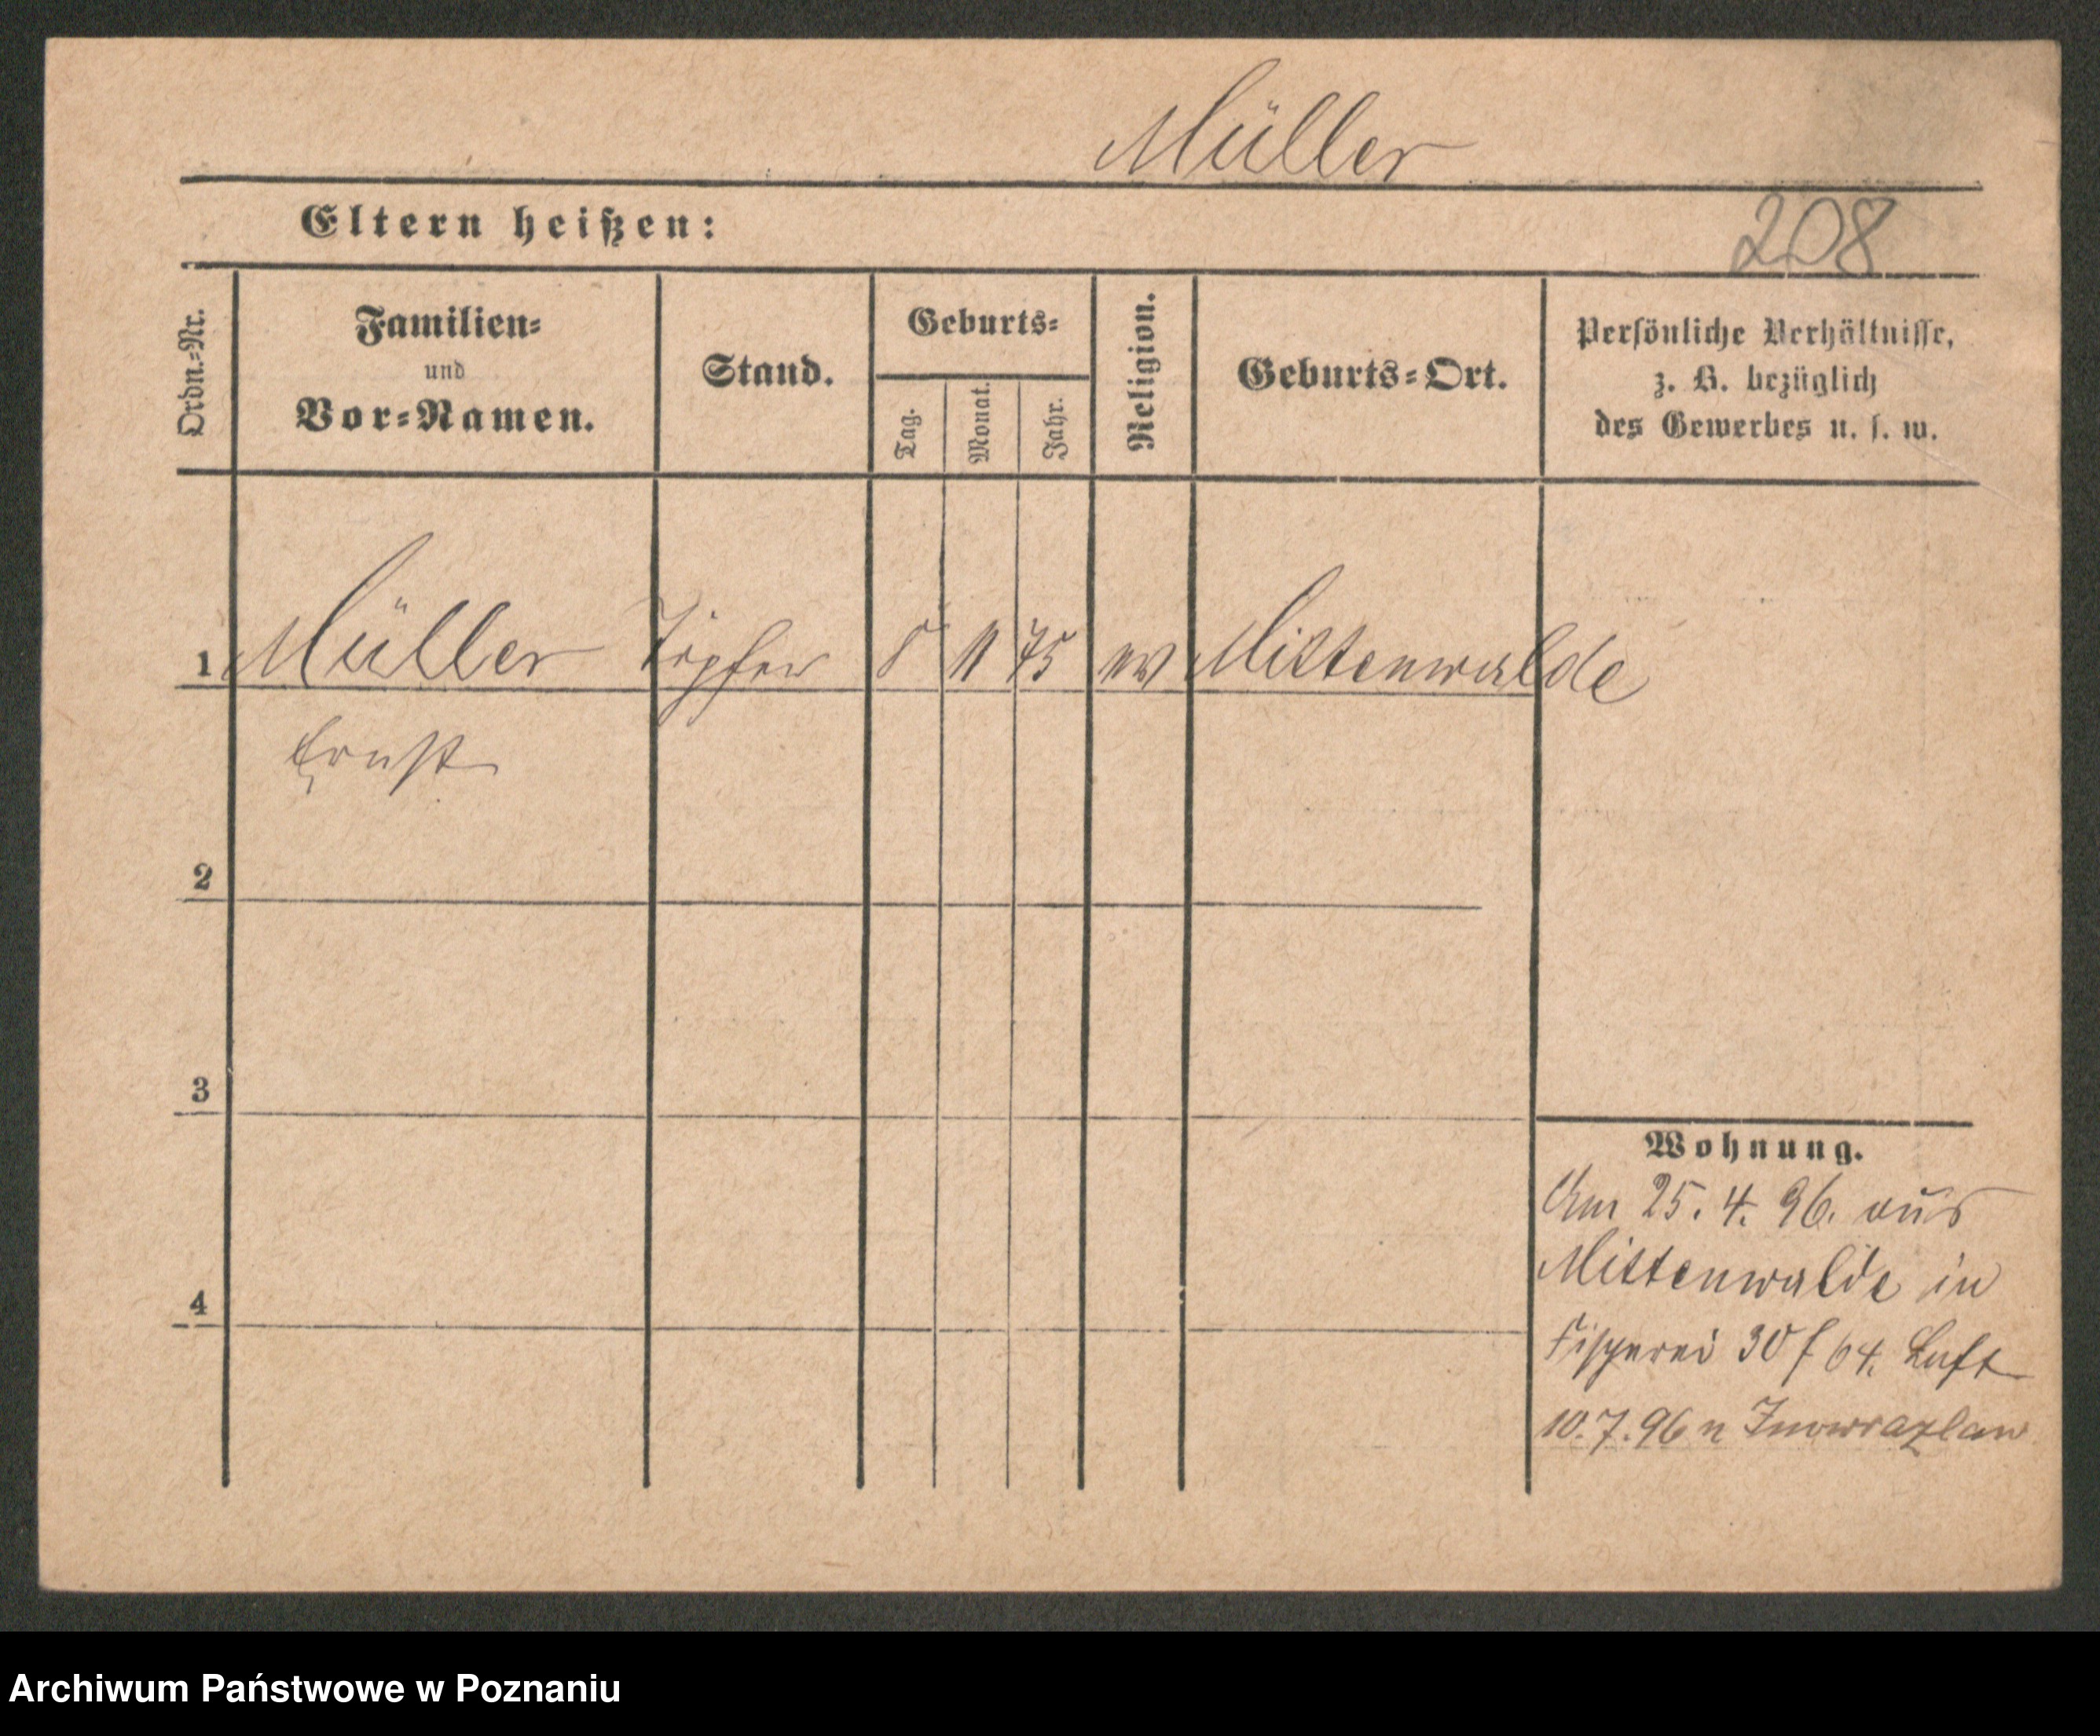 Müller
Eltern heißen:
208
Ordn.-Nr.
Familien-
und
Vor-Namen.
Stand.
Geburts-
Tag.
Monat.
Jahr.
Religion.
Geburts-Ort.
Persönliche Verhältnisse,
z. B. bezüglich
des Gewerbes u. s. w.
1 Müller Töpfer 8 11 75 ev Mittenwalde
Ernst
2
3
4
Wohnung.
Am 25. 4. 96. aus
Mittenwalde in
Fischerei 30 f 64.
10. 7. 96 n Inowrazlaw
Archiwum Państwowe w Poznaniu